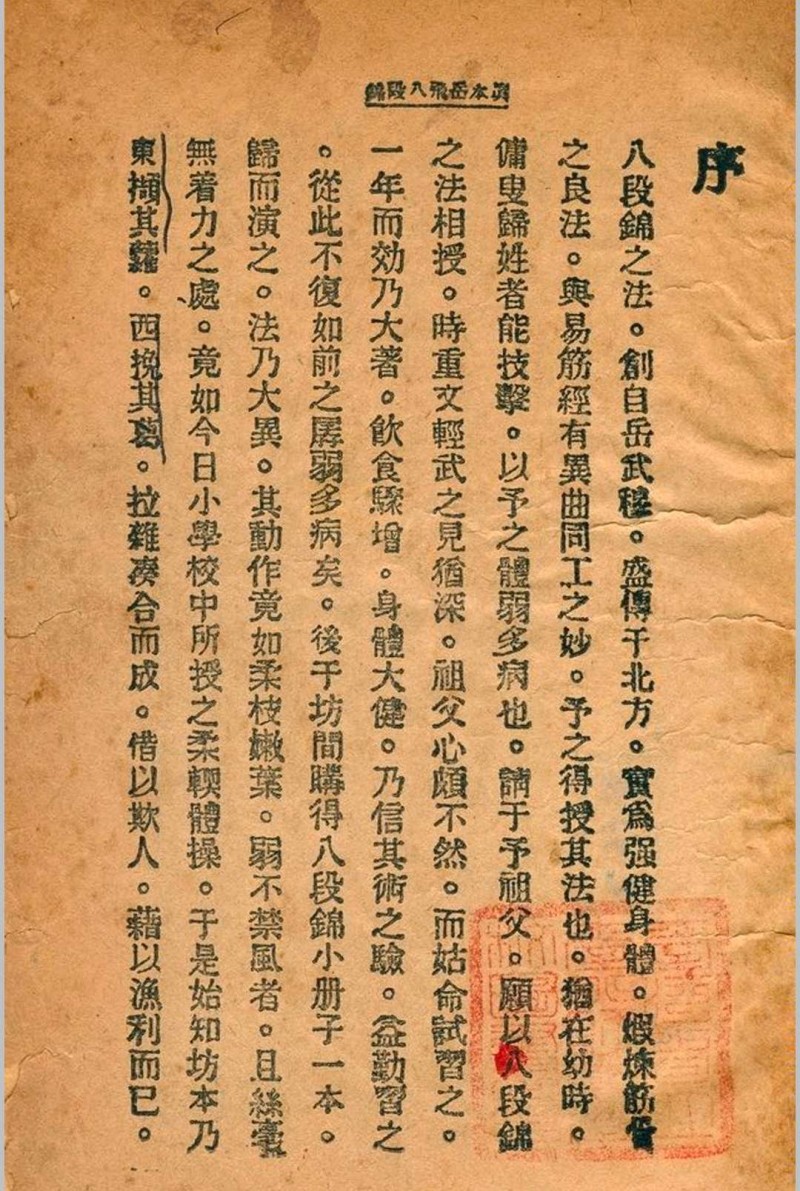 真本岳飛八段錦
序
八段錦之法。創自岳武穆。盛傳于北方。實爲强健身體。煅煉筋骨
之良法。與易筋經有異曲同工之妙。予之得授其法也。猶在幼時。
傭叟歸姓者能技擊。以予之體弱多病也。請于予祖父。願以八段錦
之法相授。時重文輕武之見猶深。祖父心頗不然。而姑命試習之。
一年而効乃大著。飮食驟增。身體大健。乃信其術之驗。益勤習之
。從此不復如前之孱弱多病矣。後于坊間購得八段錦小册子一本。
歸而演之。法乃大異。其動作竟如柔枝嫩葉。弱不禁風者。且絲毫
無着力之處。竟如今日小學校中所授之柔輭體操。于是始知坊本乃
東擷其。西挽其葛。拉雜凑合而成。借以欺人。藉以漁利而已。